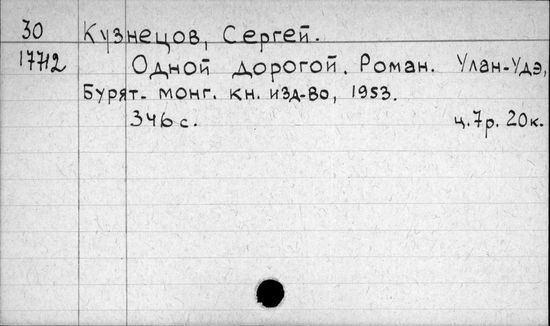 30 Кузнецов, Сергей.
17712 Одной дорогой. Роман. Улан-Удэ,
Бурят-монг. кн. изд-во, 1953.
346 с. ц. 7р. 20к.